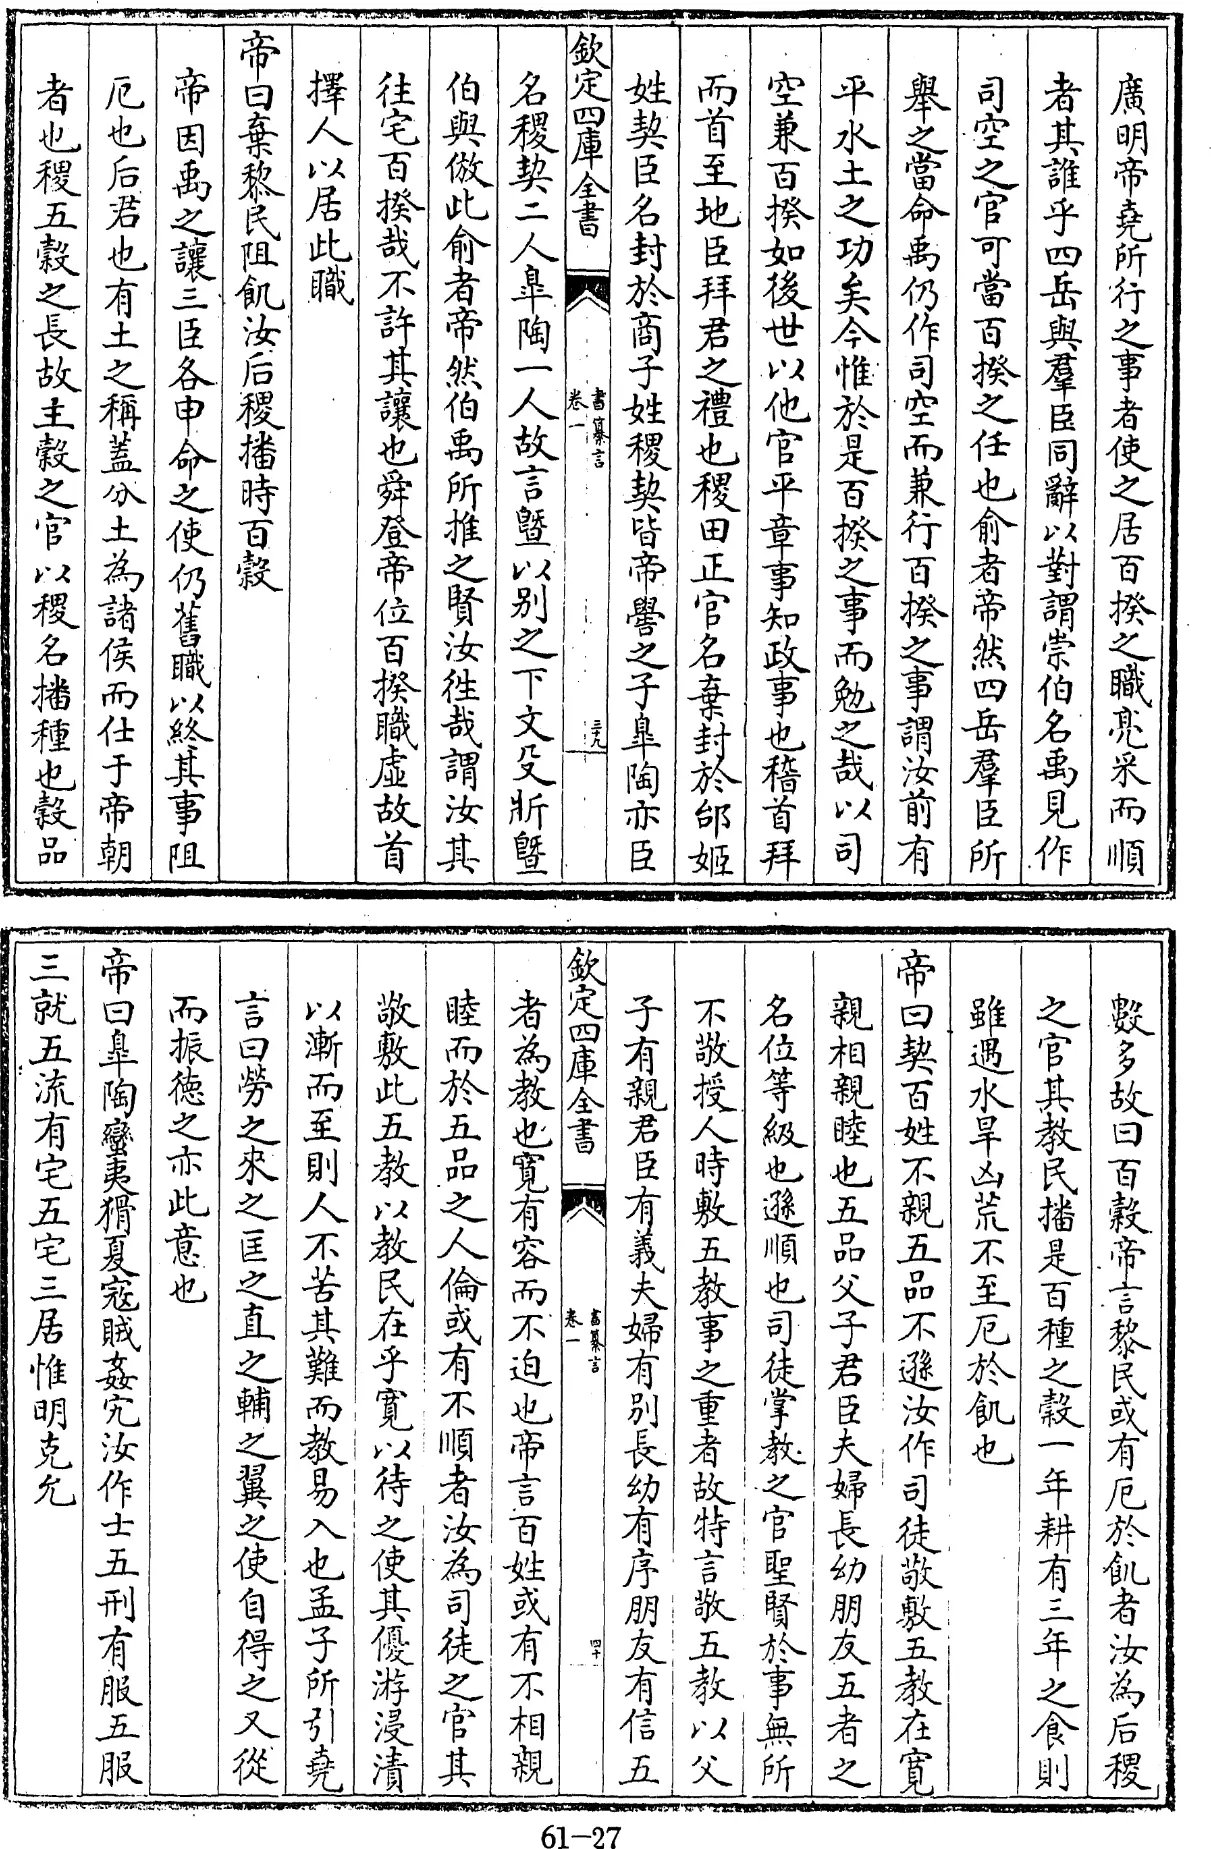 廣明帝堯所行之事者使之居百揆之職亮采而順
者其誰乎四岳與羣臣同辭以對謂崇伯名禹見作
司空之官可當百揆之任也俞者帝然四岳羣臣所
舉之當命禹仍作司空而兼行百揆之事謂汝前有
平水土之功矣今惟於是百揆之事而勉之哉以司
空兼百揆如後世以他官平章事知政事也稽首拜
而首至地臣拜君之禮也稷田正官名棄封於邰姬
姓契臣名封於商子姓稷契皆帝嚳之子臯陶亦臣
欽定四庫全書
書纂言
卷一
三十九
名稷契二人臯陶一人故言暨以别之下文殳斨暨
伯與倣此俞者帝然伯禹所推之賢汝徃哉謂汝其
往宅百揆哉不許其讓也舜登帝位百揆職虛故首
擇人以居此職
帝曰棄黎民阻飢汝后稷播時百穀
帝因禹之讓三臣各申命之使仍舊職以終其事阻
厄也后君也有土之稱葢分土為諸侯而仕于帝朝
者也稷五穀之長故主穀之官以稷名播種也穀品
數多故曰百穀帝言黎民或有厄於飢者汝為后稷
之官其教民播是百種之穀一年耕有三年之食則
雖遇水旱凶荒不至厄於飢也
帝曰契百姓不親五品不遜汝作司徒敬敷五教在寛
親相親睦也五品父子君臣夫婦長幼朋友五者之
名位等級也遜順也司徒掌教之官聖賢於事無所
不敬授人時敷五教事之重者故特言敬五教以父
子有親君臣有義夫婦有别長幼有序朋友有信五
欽定四庫全書
書纂言
卷一
四十
者為教也寛有容而不迫也帝言百姓或有不相親
睦而於五品之人倫或有不順者汝為司徒之官其
敬敷此五教以教民在乎寛以待之使其優游浸漬
以漸而至則人不苦其難而教易入也孟子所引堯
言曰勞之來之匡之直之輔之翼之使自得之又從
而振德之亦此意也
帝曰臯陶蠻夷猾夏寇賊姦宄汝作士五刑有服五服
三就五流有宅五宅三居惟明克允
61-27